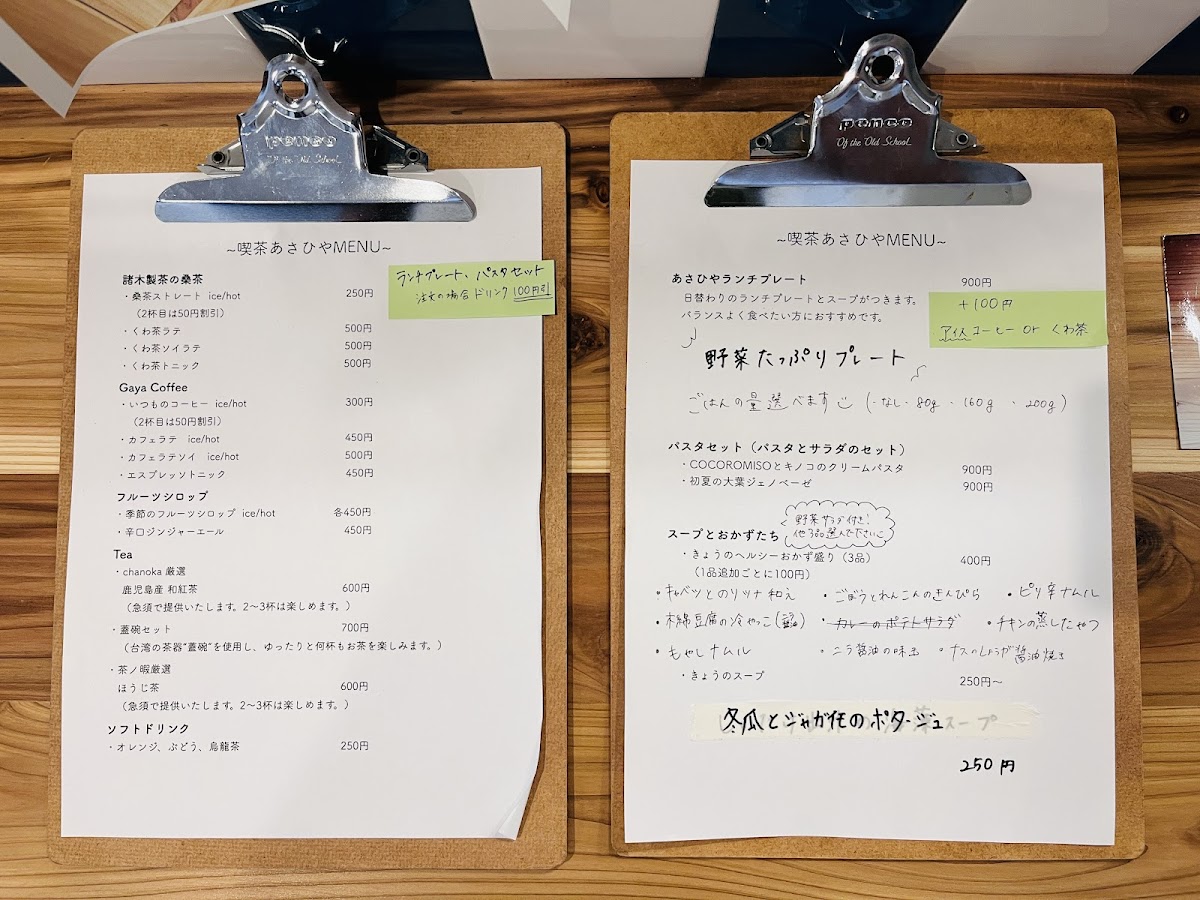 penco
Of the Old School
~喫茶あさひやMENU~
ランチプレート、パスタセット
注文の場合ドリンク100円引
諸木製茶の桑茶
・桑茶ストレート ice/hot 250円
(2杯目は50円割引)
・くわ茶ラテ 500円
・くわ茶ソイラテ 500円
・くわ茶トニック 500円
Gaya Coffee
・いつものコーヒー ice/hot 300円
(2杯目は50円割引)
・カフェラテ ice/hot 450円
・カフェラテソイ ice/hot 500円
・エスプレッソトニック 450円
フルーツシロップ
・季節のフルーツシロップ ice/hot 各450円
・辛口ジンジャーエール 450円
Tea
・chanoka 厳選
鹿児島産 和紅茶 600円
(急須で提供いたします。2〜3杯は楽しめます。)
・蓋碗セット 700円
(台湾の茶器"蓋碗"を使用し、ゆったりと何杯もお茶を楽しみます。)
・茶ノ暇厳選
ほうじ茶 600円
(急須で提供いたします。2〜3杯は楽しめます。)
ソフトドリンク
・オレンジ、ぶどう、烏龍茶 250円
penco
Of the Old School
~喫茶あさひやMENU~
あさひやランチプレート 900円
日替わりのランチプレートとスープがつきます。
バランスよく食べたい方におすすめです。
+100円
アイスコーヒー or くわ茶
野菜たっぷりプレート
ごはんの量選べます (・なし・80g・160g・200g)
パスタセット(パスタとサラダのセット)
・COCOROMISOとキノコのクリームパスタ 900円
・初夏の大葉ジェノベーゼ 900円
野菜サラダ付き!
他3品選んで下さい
スープとおかずたち
・きょうのヘルシーおかず盛り(3品) 400円
(1品追加ごとに100円)
・キャベツとのりツナ和え ・ごぼうとれんこんのきんぴら ・ピリ辛ナムル
・木綿豆腐の冷やっこ ・カレーのポテトサラダ ・チキンの蒸したやつ
・もやしナムル ・ニラ醤油の味玉 ・ナスのしょうが醤油焼き
・きょうのスープ 250円〜
冬瓜とジャガ伍のポタージュ
スープ
250円